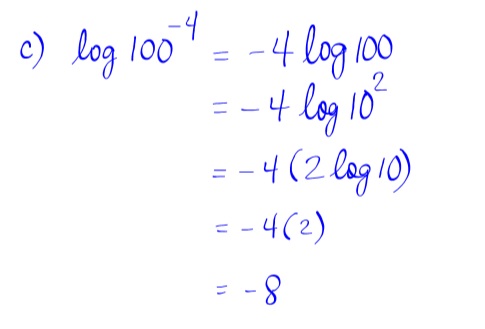 c) log 100⁻⁴ = -4 log 100
= -4 log 10²
= -4(2 log 10)
= -4(2)
= -8